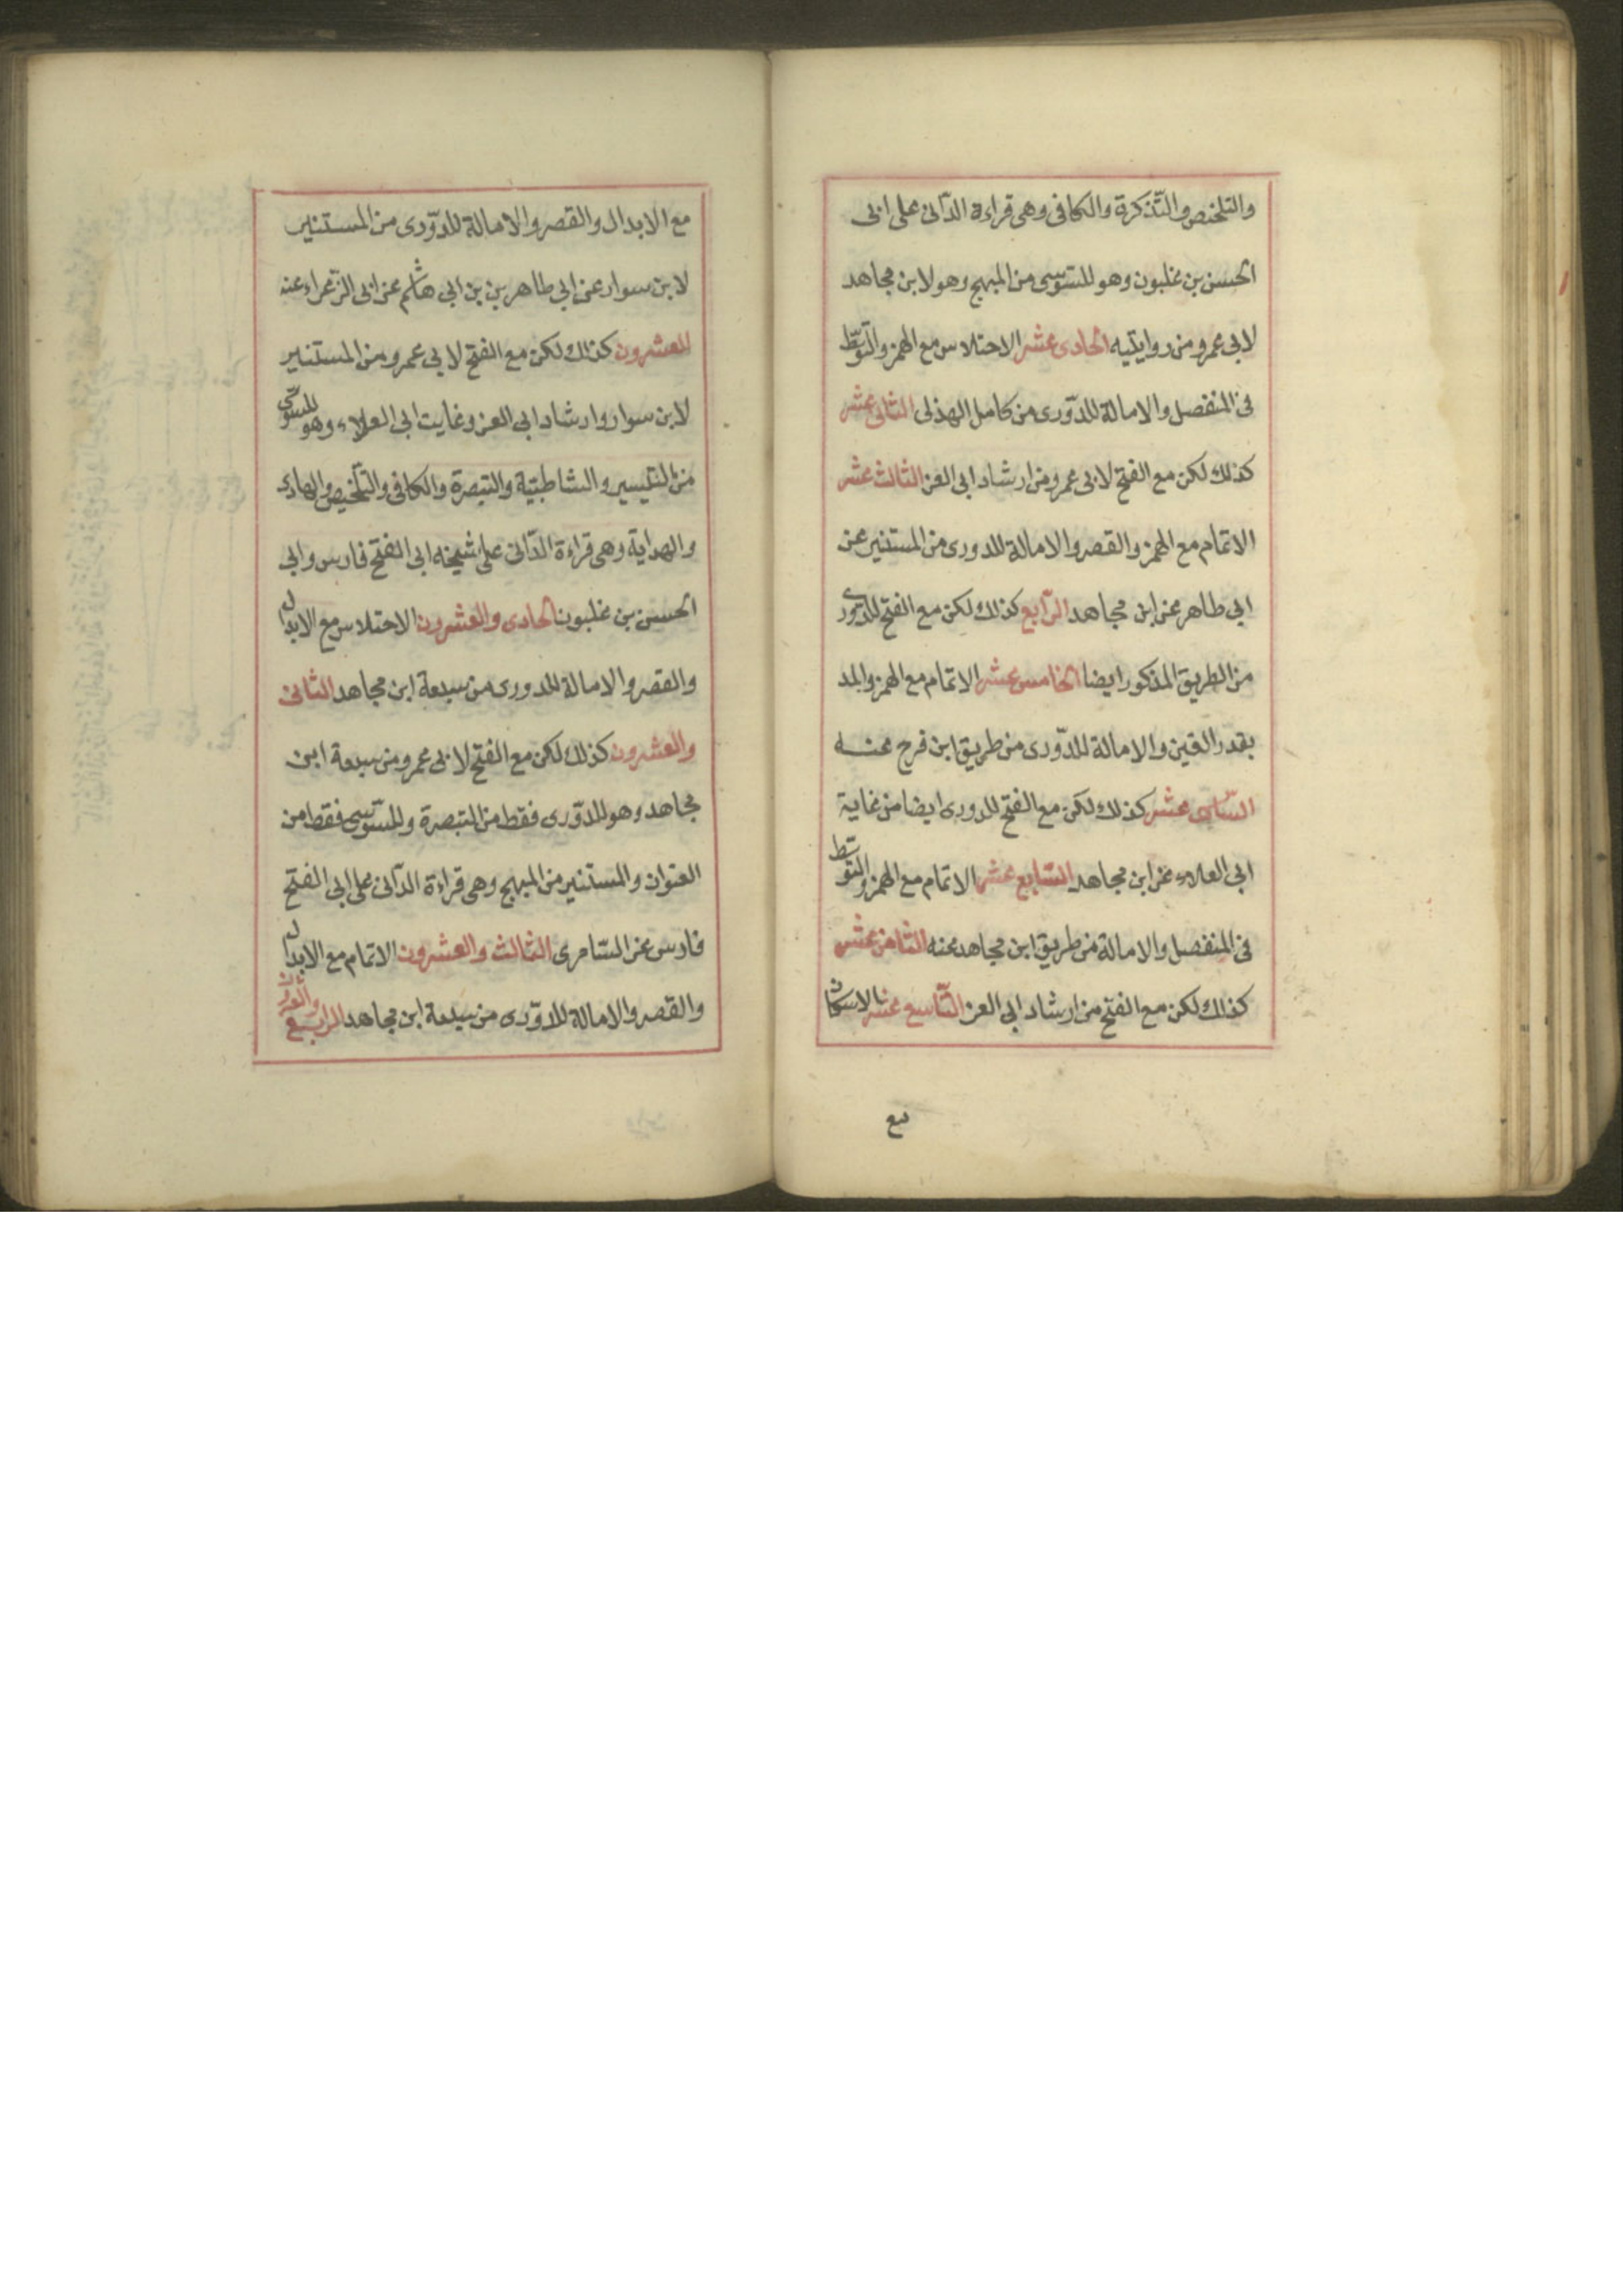 والتلخيص والتّذكرة والكافى وهى قراءة الدّانى على ابى
الحسن بن غلبون وهو للسّوسى من المبهج وهو لابن مجاهد
لابى عمرو من روايتيه الحادى عشر الاختلاس مع الهمز والتّوسّط
فى المنفصل والامالة للدّورى من كامل الهذلى الثانى عشر
كذلك لكن مع الفتح لابى عمرو من ارشاد ابى العز الثالث عشر
الاتمام مع الهمز والقصر والامالة للدورى من المستنير عن
ابى طاهر عن ابن مجاهد الرّابع كذلك لكن مع الفتح للدّورى
من الطريق المذكور ايضا الخامس عشر الاتمام مع الهمز والمد
بقدر الفين والامالة للدّورى من طريق ابن فرح عنه
السّادس عشر كذلك لكن مع الفتح للدورى ايضا من غاية
ابى العلاء عن ابن مجاهد السّابع عشر الاتمام مع الهمز والتوسّط
فى المنفصل والامالة من طريق ابن مجاهد عنه الثامن عشر
كذلك لكن مع الفتح من ارشاد ابى العز التّاسع عشر الاسكان
مع
مع الابدال والقصر والامالة للدّورى من المستنير
لابن سوار عن ابى طاهر بن بن ابى هاشم عن ابى الزّعراء عنه
العشرون كذلك لكن مع الفتح لابى عمرو من المستنير
لابن سوار وارشاد ابى العز وغايت ابى العلاء وهو للسّوسى
من التيسير والشاطبيّة والتبصرة والكافى والتّلخيص والهادى
والهداية وهى قراءة الدّانى على شيخه ابى الفتح فارس وابى
الحسن بن غلبون الحادى والعشرون الاختلاس مع الابدال
والقصر والامالة للدورى من سبعة ابن مجاهد الثانى
والعشرون كذلك لكن مع الفتح لابى عمرو من سبعة ابن
مجاهد وهو للدّورى فقط من التبصرة وللسّوسى فقط من
العنوان والمستنير من المبهج وهى قراءة الدّانى على ابى الفتح
فارس عن السّامرى الثالث والعشرون الاتمام مع الابدال
والقصر والامالة للدوّرى من سبعة ابن مجاهد الرابع والعشرون